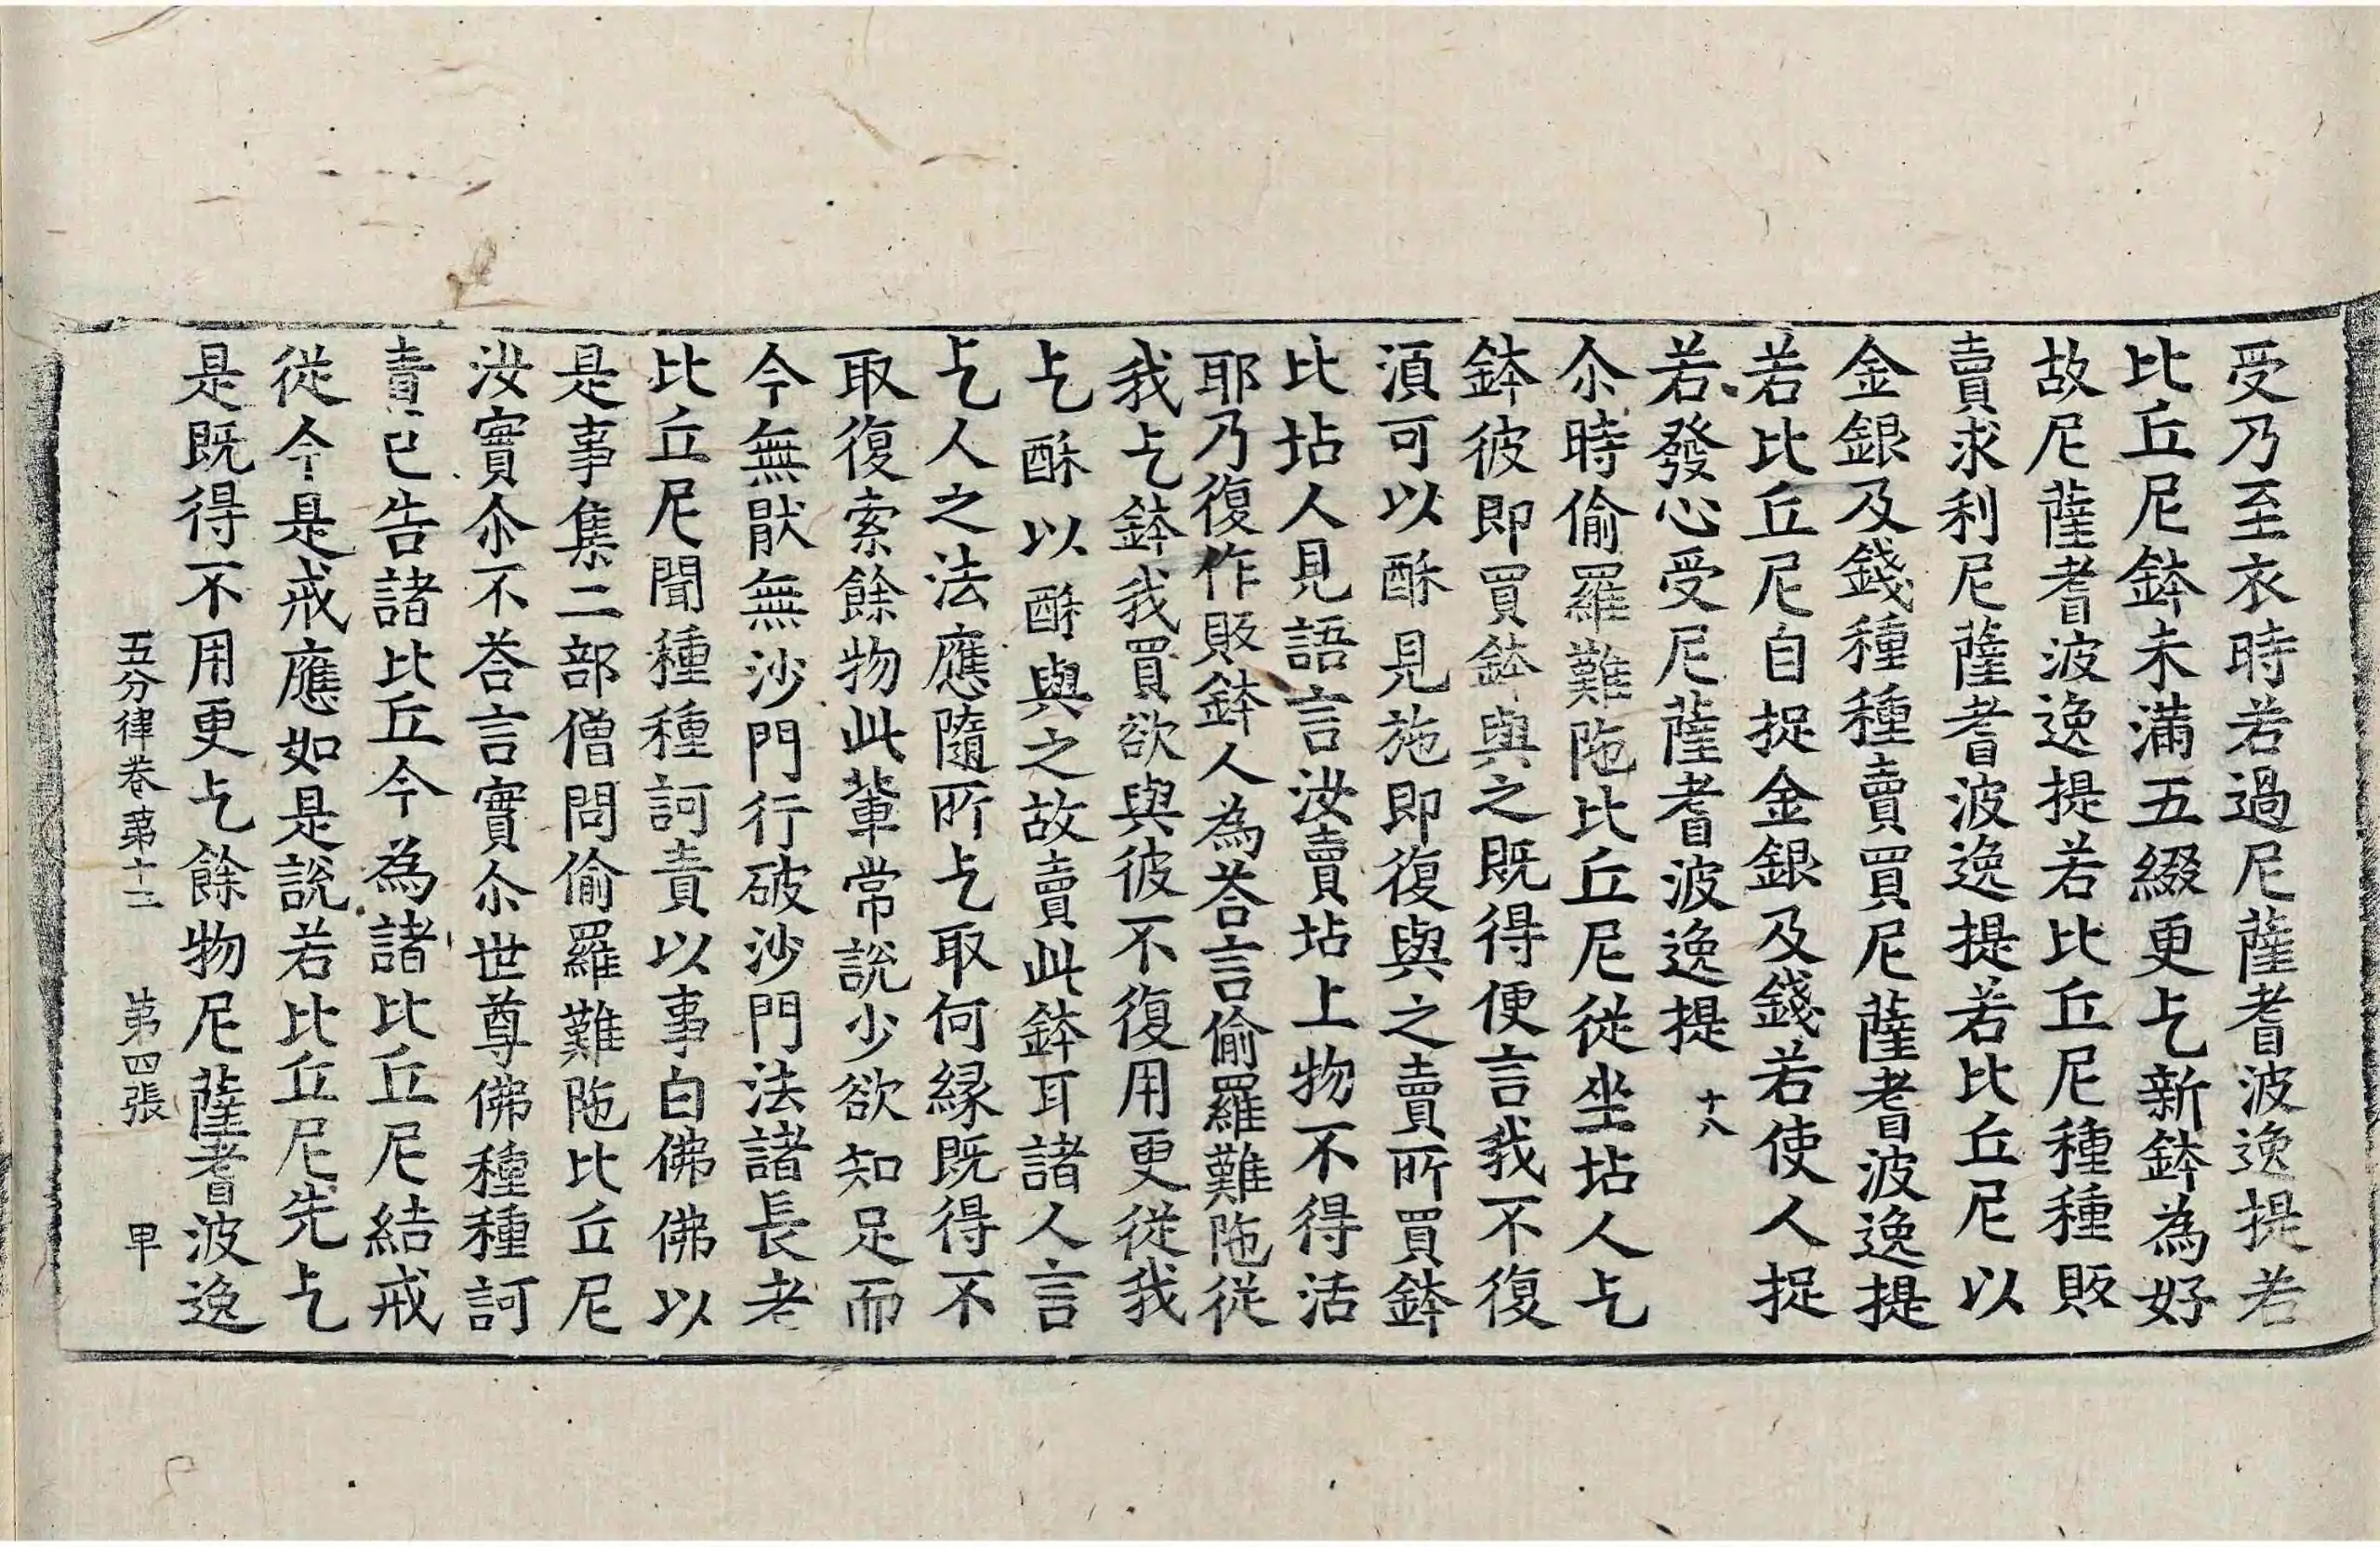 受乃至衣時若過尼薩耆波逸提若
比丘尼鉢未滿五綴更乞新鉢為好
故尼薩耆波逸提若比丘尼種種販
賣求利尼薩耆波逸提若比丘尼以
金銀及錢種種賣買尼薩耆波逸提
若比丘尼自捉金銀及錢若使人捉
若發心受尼薩耆波逸提 十八
尒時偷羅難陁比丘尼從坐坫人乞
鉢彼即買鉢與之既得便言我不復
湏可以酥見施即復與之賣所買鉢
比坫人見語言汝賣坫上物不得活
耶乃復作販鉢人為荅言偷羅難陁從
我乞鉢我買欲與彼不復用更從我
乞酥以酥與之故賣此鉢耳諸人言
乞人之法應隨所乞取何緣既得不
取復索餘物此輩常說少欲知足而
今無猒無沙門行破沙門法諸長老
比丘尼聞種種訶責以事白佛佛以
是事集二部僧問偷羅難陁比丘尼
汝實尒不荅言實尒世尊佛種種訶
責已告諸比丘今為諸比丘尼結戒
從今是戒應如是說若比丘尼先乞
是既得不用更乞餘物尼薩耆波逸
五分律卷苐十二 苐四張 甲